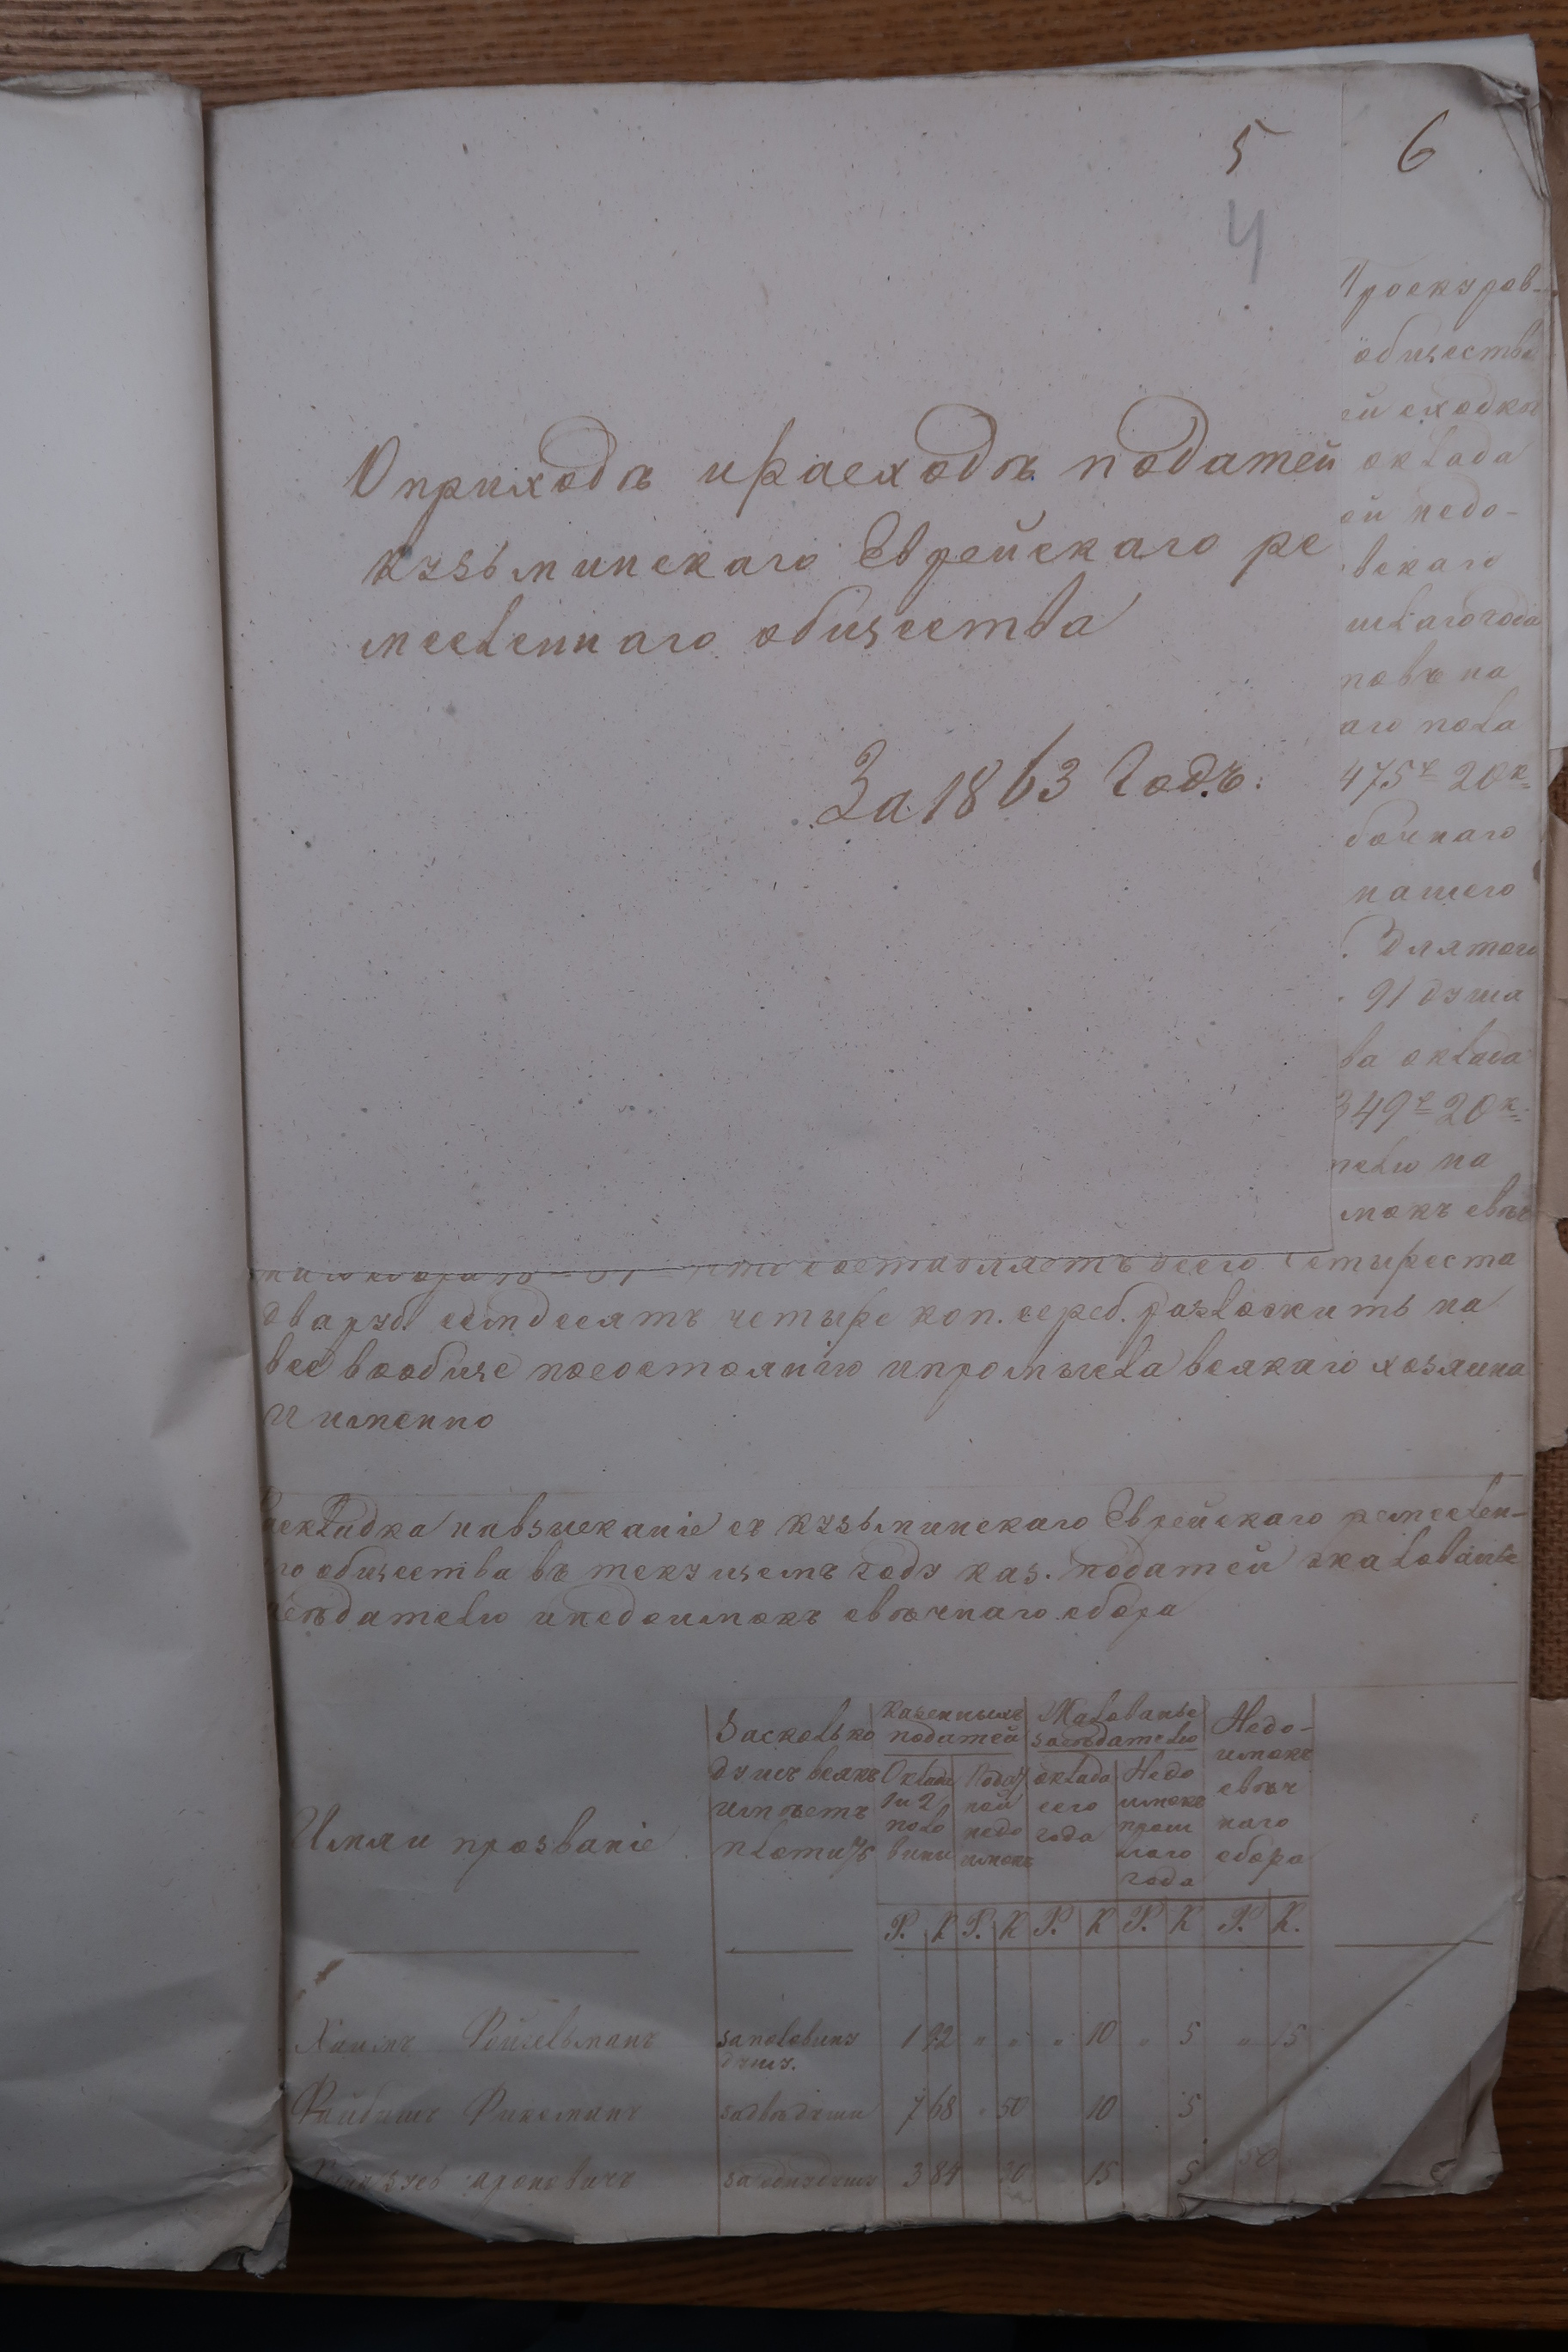 5
4
О приходѣ и расходѣ податей
кузьминскаго Еврейскаго ре
месленнаго общества
За 1863 Годъ:
6
общества
ей сходкѣ
оклада
ей недо-
вскаго
шлаго года
повъ на
аго пола
475 р 20 к
бочнаго
нашего
. Для того
91 душа
ва оклада
349 р 20 к
телю на
мокъ свѣч
составляетъ всего четыреста
два руб. семдесятъ четыре коп. сереб. разложить на
все вообще посостоянію и промысла всякаго хозяина
и именно
раскладка на взысканіе съ кузьминскаго Еврейскаго ремеслен-
го общества въ текущемъ году каз. податей жалованье
засѣдателю и недоимокъ свѣчнаго сбора
Имя и прозваніе
За сколько
душъ всякъ
имѣетъ
платить
Казенныхъ
податей
Оклада
1 и 2
поло
вины
Подат
ной
недо
имокъ
Жалованье
засѣдателю
оклада
сего
года
Недо
имокъ
прош
лаго
года
Недо-
имокъ
свѣч
наго
сбора
Р. К Р. К Р. К Р. К Р. К.
Хаимъ Фойгельманъ за половину 1 92 " " " 10 " 5 " 15
душ.
Файбишъ Фиксманъ за двѣ души 7 68 " 50 10 5
ароновичъ за одну душу 3 84 30 15 5 50